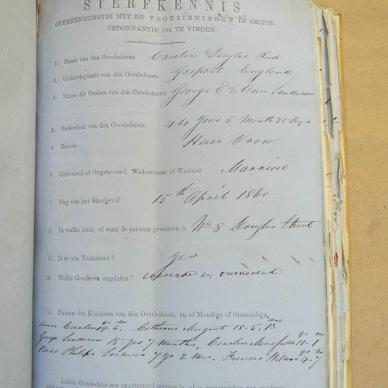 STERFKENNIS
OVEREENKOMSTIG MET DE VOORZIENINGEN IN SECTIE
ORDONNANTIE 104 TE VINDEN.
1. Naam van den Overledenen Caroline Douglas Reid
2. Geboorteplaats van den Overledenen Gosport England
3. Namen der Ouders van den Overledenen George E & Ann Sanderson
4. Ouderdom van den Overledenen 44 Years 5 Month 25 Days
5. Beroep Huis Vrouw
6. Getrouwd of Ongetrouwd, Weduwenaar of Weduwe Married
7. Dag van het Sterfgeval 15th April 1860
8. In welke huis, of waar de persoon gestorven is No 8 Douglas Street
9. Is er een Testament? yes
10. Welke Goederen nagelaten? roerende en onroerende
11. Namen der Kinderen van den Overledenen, en of Mondige of Onmondige,
Catherine Margaret 18-5-13
George 15 yrs 7 months, Caroline 11-1
7 yrs 2 mos. Frances 4-7